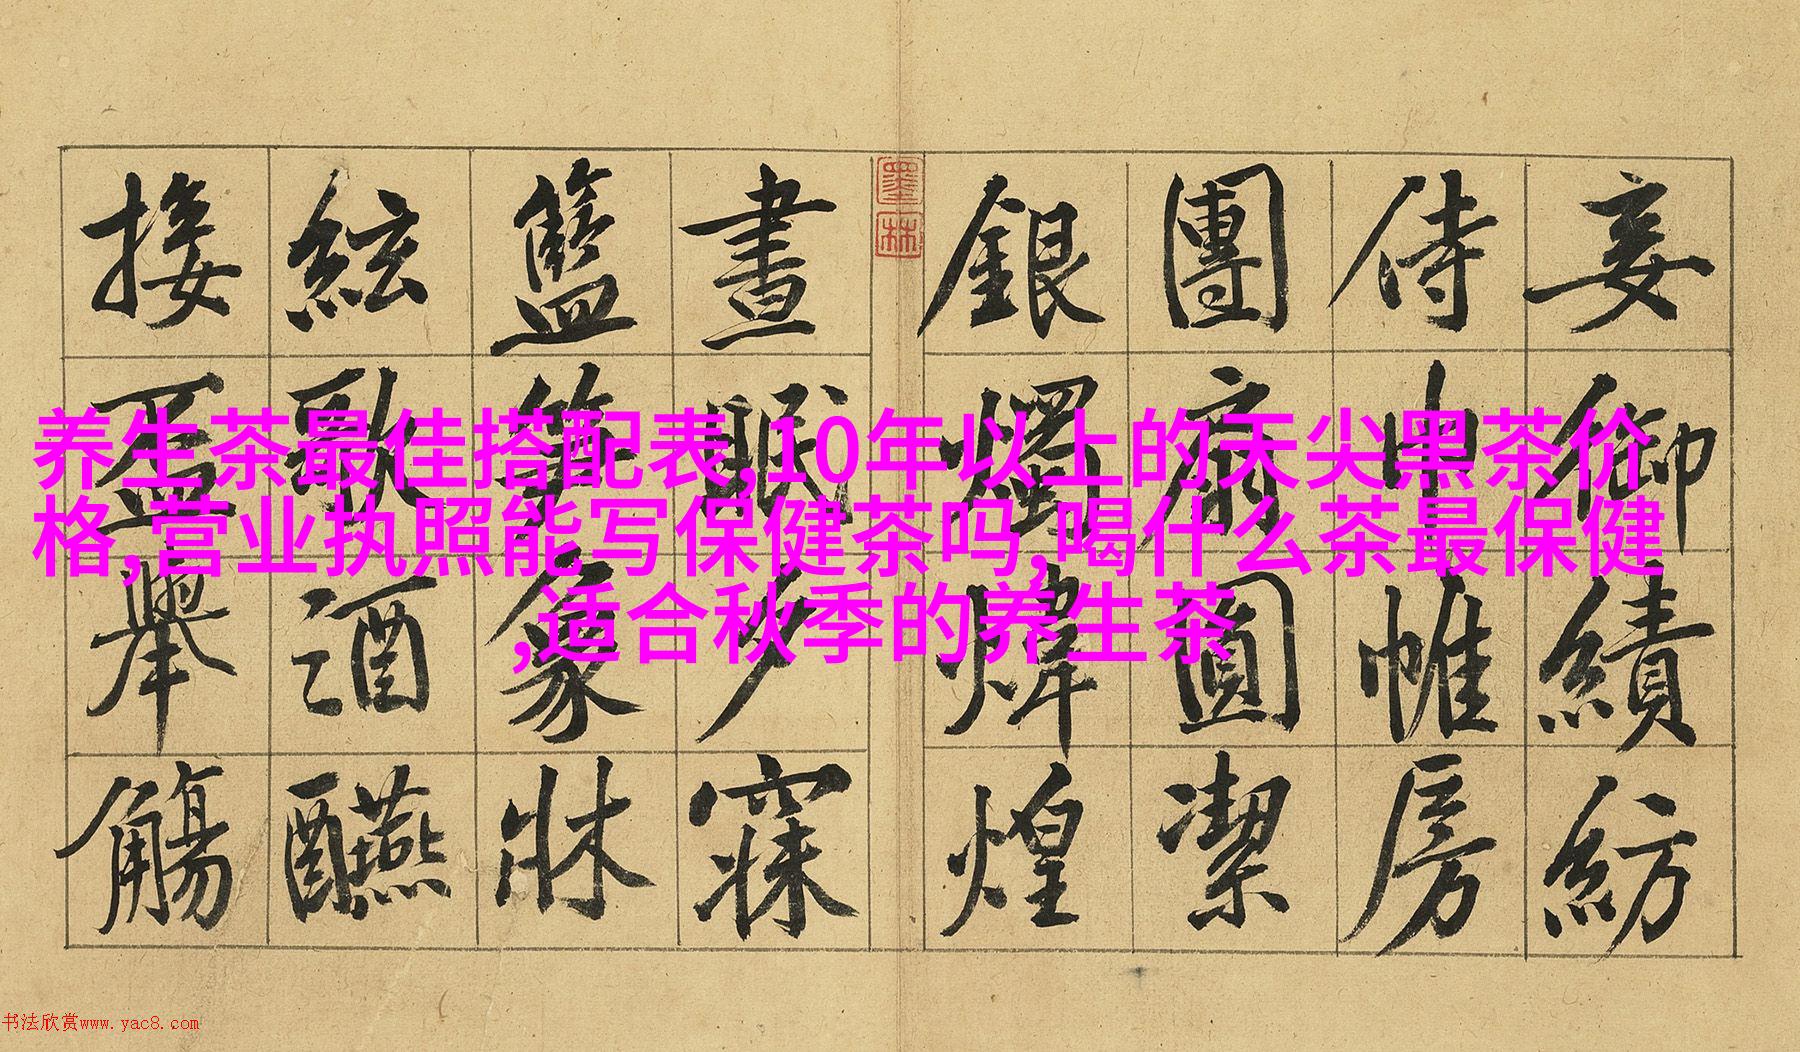 妾御績紡
侍巾帷房
團扇圓潔
銀燭煒煌
墨林
晝眠夕寐
籃筍象牀
絃歌酒醼
接盃舉觴
养生茶最佳搭配表,10年以上的天尖黑茶价
格,营业执照能写保健茶吗,喝什么茶最保健
,适合秋季的养生茶
书法欣赏www.yac8.com